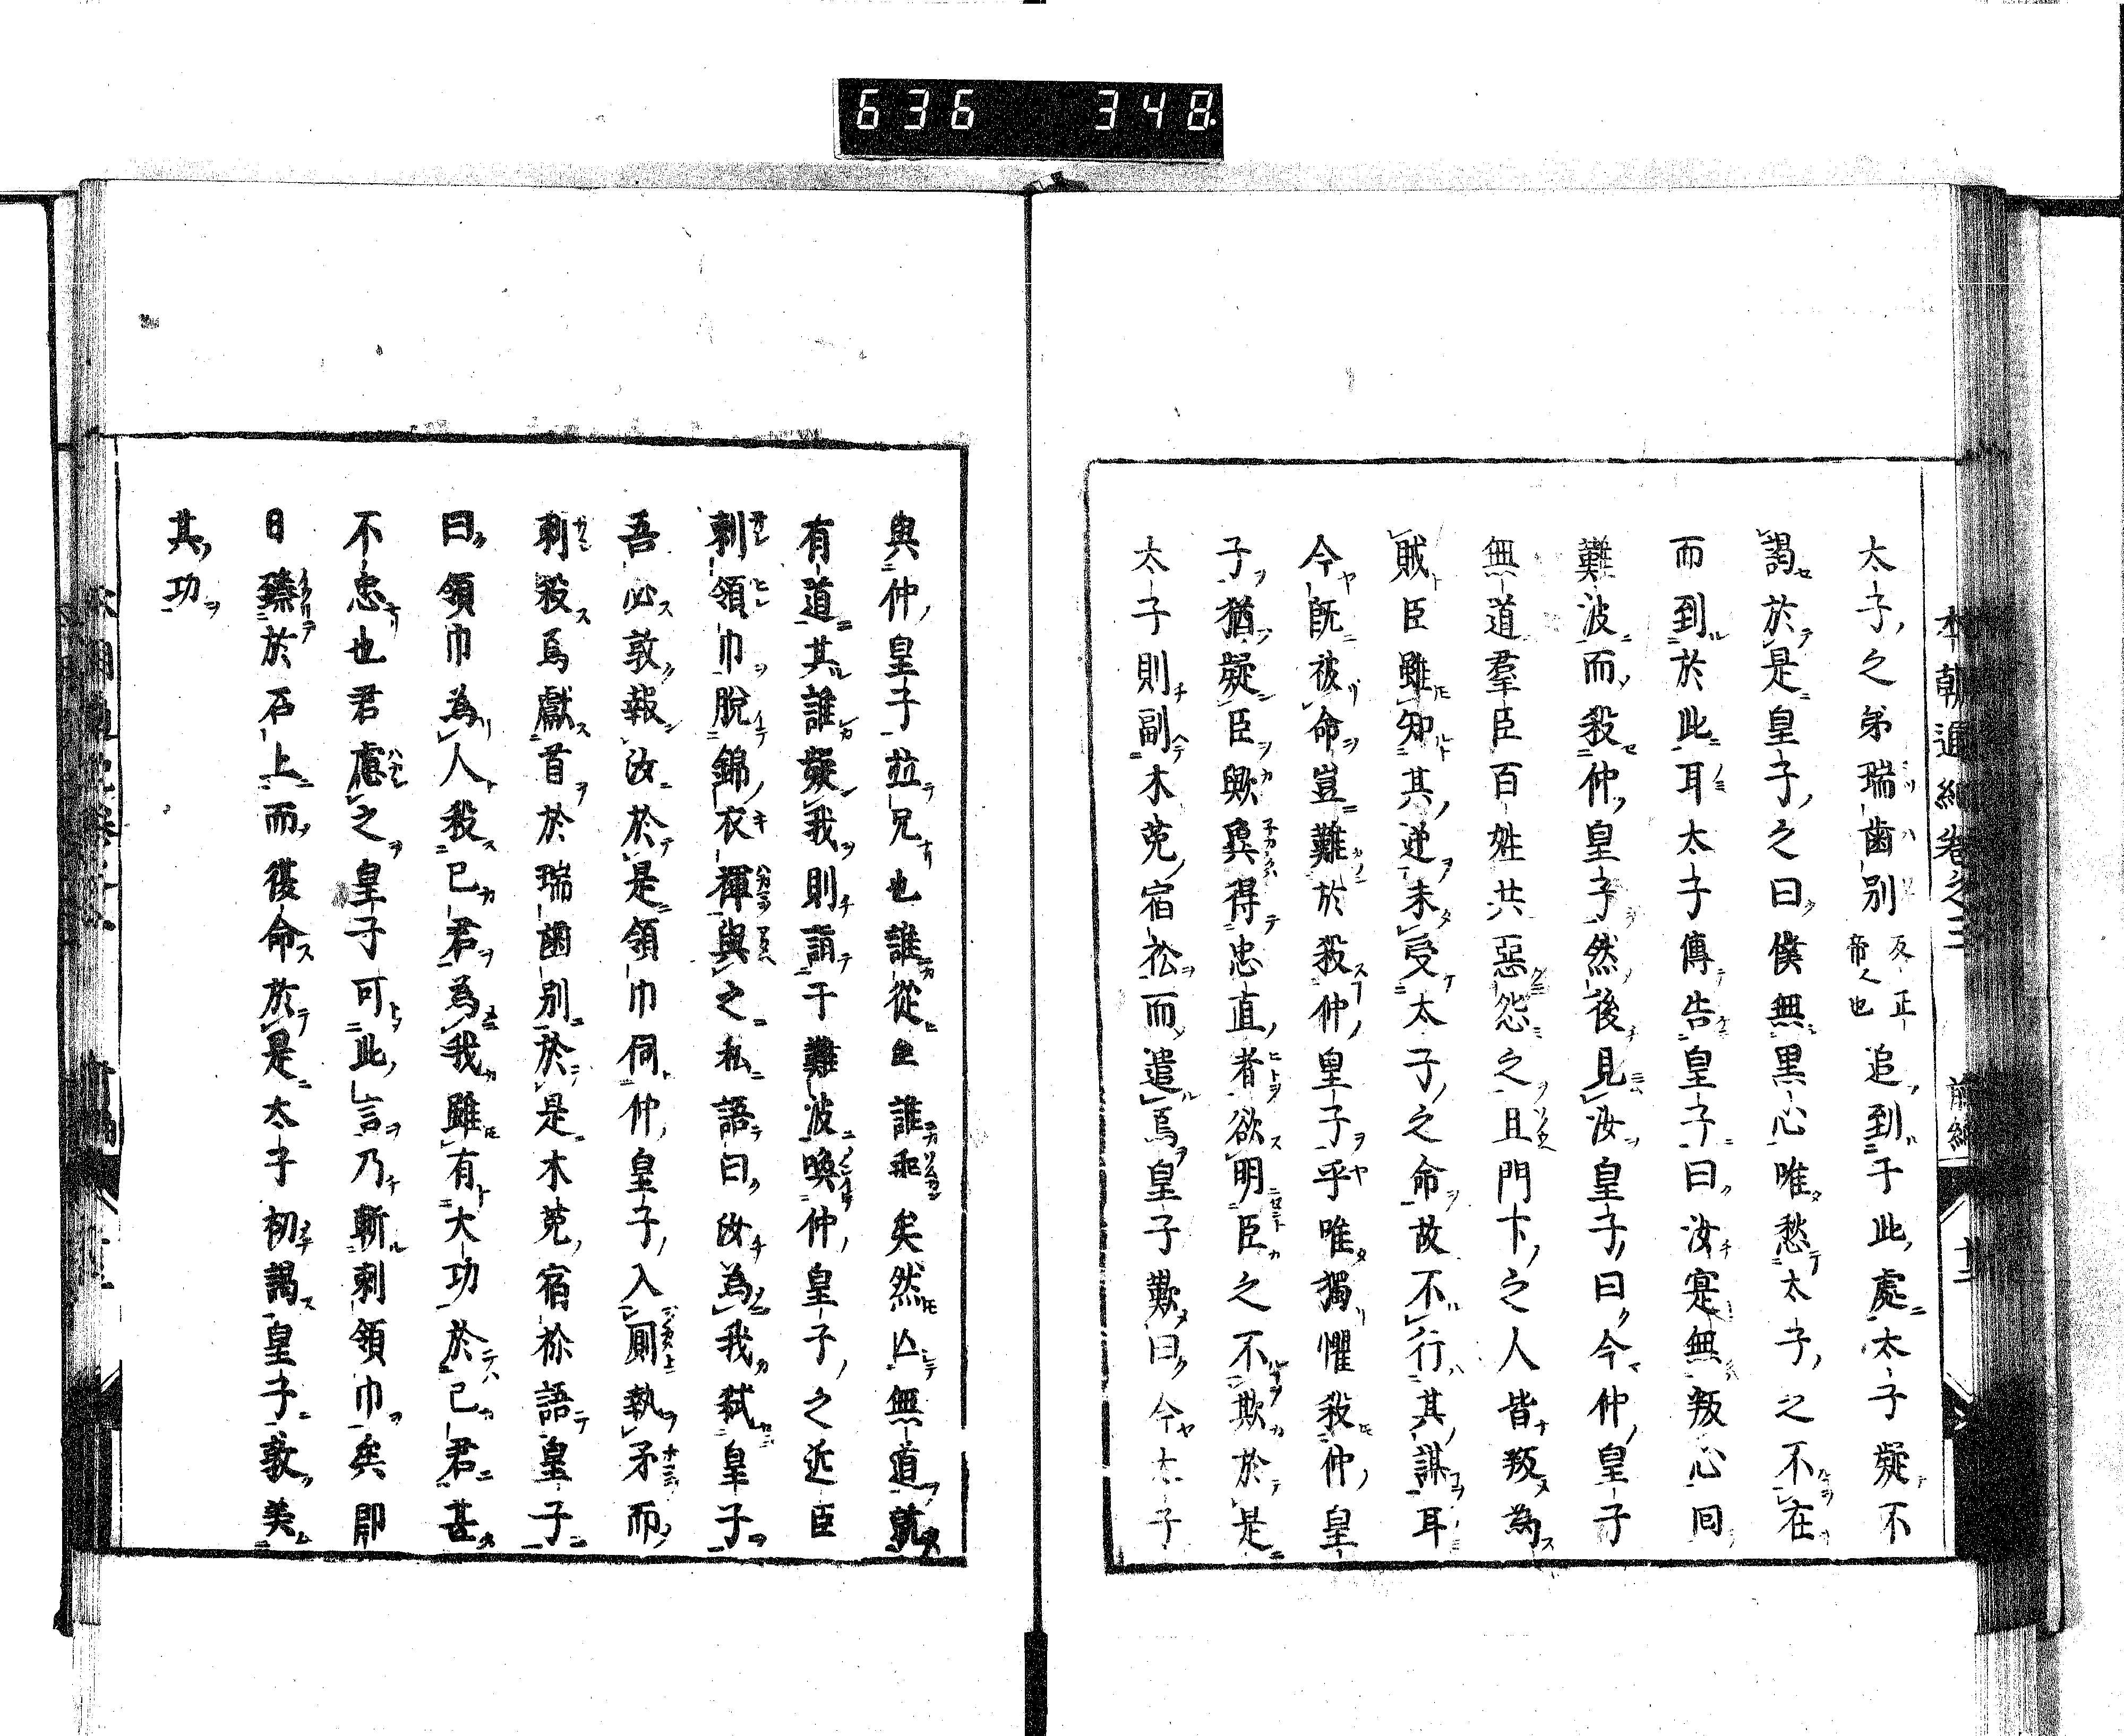 636 348
本朝通紀卷之三 前編 十二
太子之弟瑞歯別反正帝人也追到于此處太子疑不
謁於是皇子之曰僕無黒心唯愁太子之不在
而到於此耳太子傳告皇子曰汝寔無叛心囘
難波而殺仲皇子然後見汝皇子曰今仲皇子
無道羣臣百姓共惡怨之且門下之人皆叛為
賊臣雖知其逆未受太子之命故不行其謀耳
今既被命豈難於殺仲皇子乎唯獨懼殺仲皇
子猶疑臣歟兾得忠直者欲明臣之不欺於是
太子則副木莵宿祢而遣焉皇子歎曰今太子
與仲皇子竝兄也誰從且誰乖矣然亾無道就
有道其誰疑我則詣于難波喚仲皇子之近臣
刺領巾脫錦衣褌與之私語曰汝為我弑皇子
吾必敦報汝於是領巾伺仲皇子入厠執矛而
刺殺焉獻首於瑞歯別於是木莵宿祢語皇子
曰領巾為人殺已君為我雖有大功於已君甚
不忠也君慮之皇子可此言乃斬刺領巾矣即
日臻於石上而復命於是太子初謁皇子敦美
其功